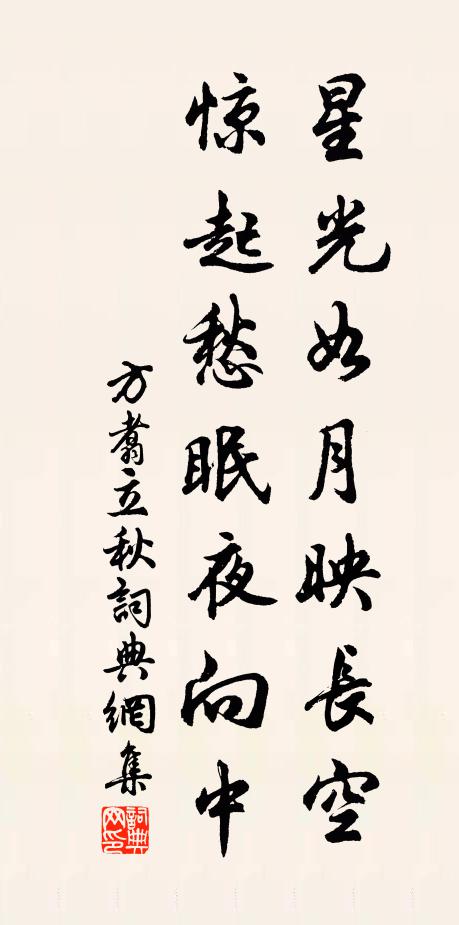 星光如月映長空
惊起愁眠夜向中
方翥立秋詞典網集
詞典网印